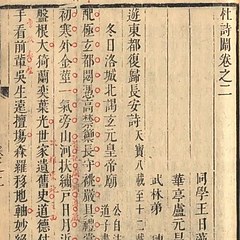 杜詩闡卷之二
同學王日
華亭盧元昌
武林弟
遊東都復歸長安詩 天寶八載至十二載
冬日洛城北謁玄元皇帝廟 公自注
道子畫
配極玄都閟憑高禁籞長守祧嚴具禮掌
初寒外金莖一氣旁山河扶繡戶日月近
盤根大猗蘭奕葉光世家遺舊史道德付
手看前輩吳生遠擅場森羅移地軸妙絕